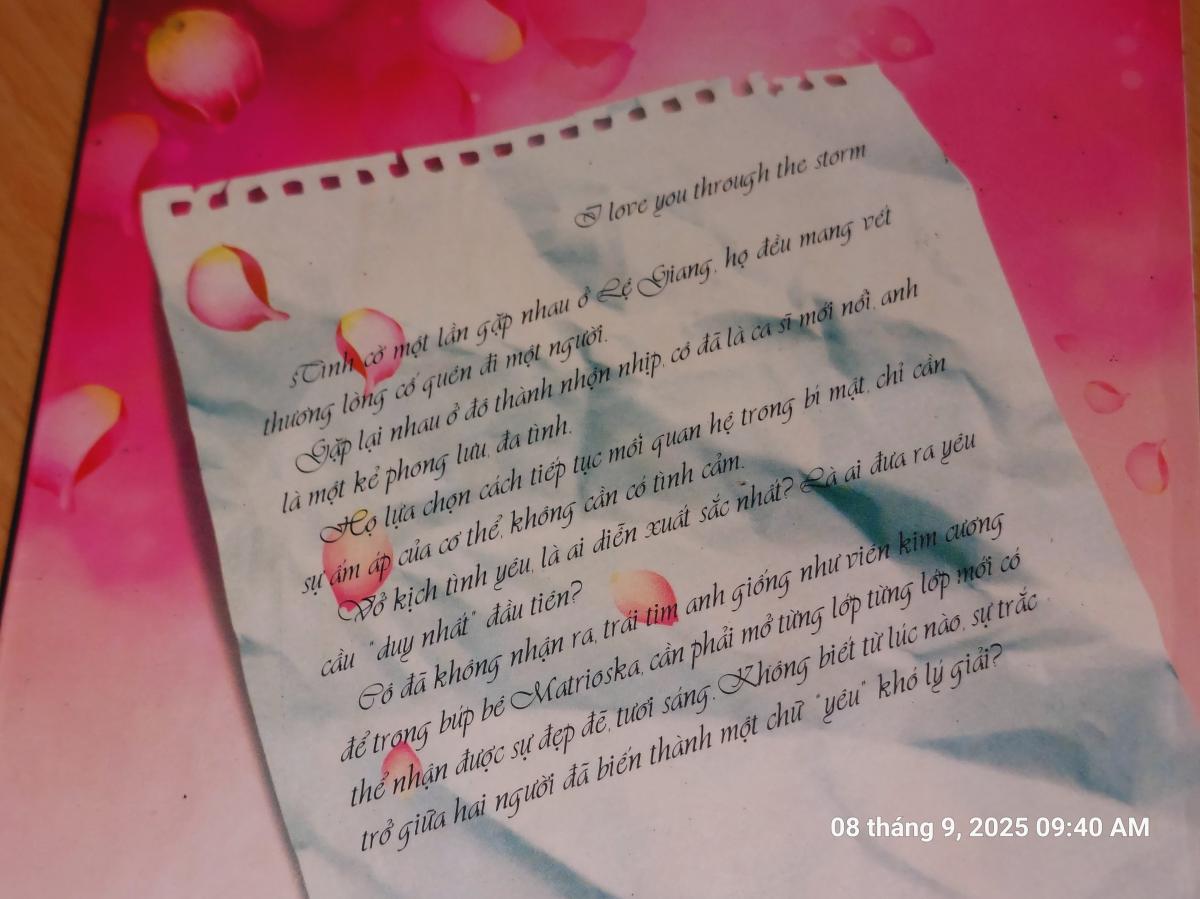 I love you through the storm
Tình cờ một lần gặp nhau ở Lệ Giang, họ đều mang vết
thương lòng cố quên đi một người.
Gặp lại nhau ở đô thành nhộn nhịp, cô đã là ca sĩ mới nổi, anh
là một kẻ phong lưu, đa tình.
Họ lựa chọn cách tiếp tục mối quan hệ trong bí mật, chỉ cần
sự ấm áp của cơ thể, không cần có tình cảm.
Vở kịch tình yêu, là ai diễn xuất sắc nhất? Là ai đưa ra yêu
cầu "duy nhất" đầu tiên?
Cô đã không nhận ra, trái tim anh giống như viên kim cương
để trong búp bê Matrioska, cần phải mở từng lớp từng lớp mới có
thể nhận được sự đẹp đẽ, tươi sáng. Không biết từ lúc nào, sự trắc
trở giữa hai người đã biến thành một chữ "yêu" khó lý giải?
08 tháng 9, 2025 09:40 AM